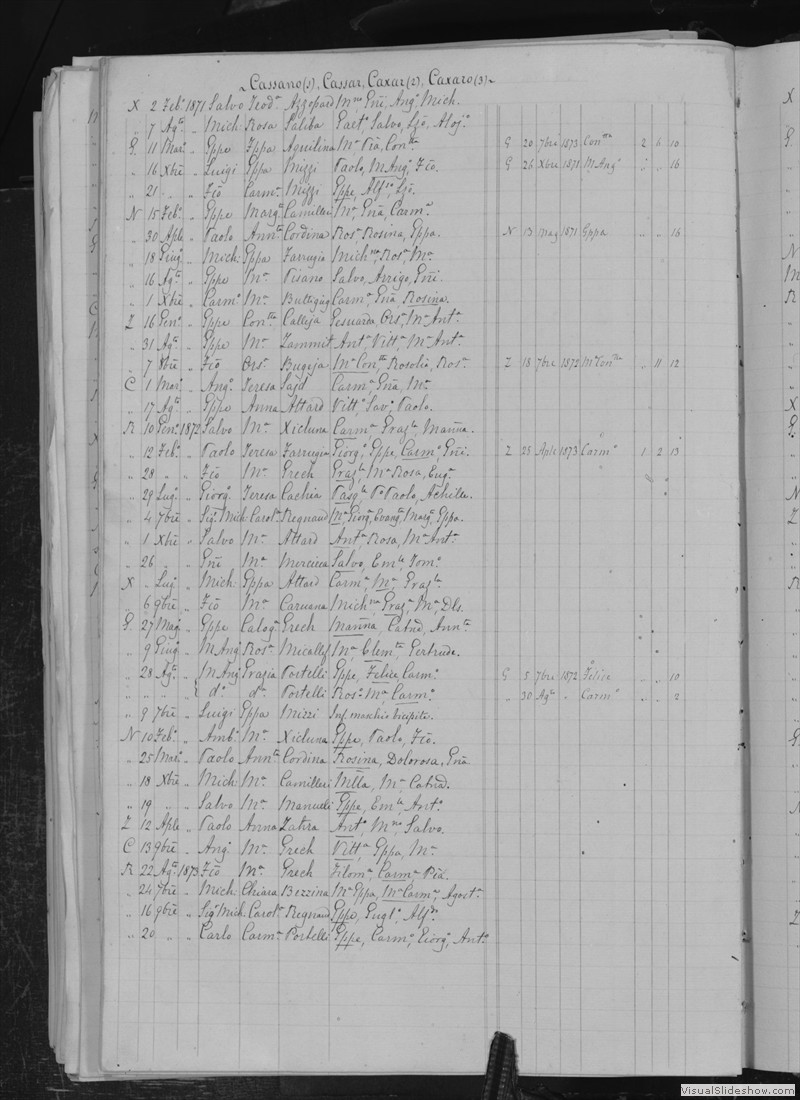 Cassano(1), Cassar, Caxar(2), Caxaro(3)
X 2 Feb.° 1871 Salvo Teod.a Azzopard M.no Gñi, Ang.° Mich.
" 7 Ag.to " Mich. Rosa Saliba Gaet.° Salvo, Lzō, Aloj.°
G 11 Mar.° " Gppe Fppa Aquilina M.a Pia, Con.tta G 20 7bre 1873 Con.tta 2 6 10
" 16 Xbre " Luigi Gppa Mizzi Paolo, M Ang.° Fcō. G 26 Xbre 1871 M Ang.° " " 16
" 21 " " Fcō Carm.a Mizzi Gppe, Alf.so, Lzō.
N 15 Feb.° " Gppe Marg.ta Camilleri M.a Gña, Carm.a
" 30 Aple " Paolo Ann.ta Cordina Ros.a Rosina, Gppa. N 13 Mag 1871 Gppa " " 16
" 18 Giug.° " Mich. Gppa Farrugia Mich.na, Ros.a M.a
" 16 Ag.to " Gppe M.a Pisano Salvo, Arrigo, Gñi.
" 1 Xbre " Carm.° M.a Buttigieg Carm.a Gña, Rosina.
Z 16 Gen.° " Gppe Con.tta Calleja Gesuarda, Ors.a, M.a Ant.a
" 31 Ag.to " Gppe M.a Zammit Ant.a Vitt.a M.a Ant.a
" 7 8bre " Fcō Ors.a Bugeja M.a Con.tta Rosolia, Ros.a Z 18 7bre 1872 M.a Con.tta " 11 12
C 1 Mar.° " Ang.° Teresa Sajd Carm.a Gña, M.a
" 17 Ag.to " Gppe Anna Attard Vitt.° Sav.° Paolo.
R 10 Gen.° 1872 Salvo M.a Xicluna Carm.a Graz.la Marīna.
" 12 Feb.° " Paolo Teresa Farrugia Giorg.° Gppe, Carm.° Gñi. Z 25 Aple 1873 Carm.° 1 2 13
" 28 " " Fcō M.a Grech Graz.la M.a Rosa, Eug.a
" 29 Lug.° " Giorg.° Teresa Cachia Pasq.le Paolo, Achille.
" 4 7bre " Sig. Mich. Carol.a Regnaud M.a Giorg.a Evang.ta Marg.a Gppa.
" 1 Xbre " Salvo M.a Attard Ant.a Rosa, M.a Ant.a
" 26 " " Gñi M.a Mercieca Salvo, Em.le, Dom.°
X " Lug.° " Mich. Gppa Attard Carm.a M.a, Graz.la
" 6 9bre " Fcō M.a Caruana Mich.na Graz.a M.a Dls.
G 27 Mag.° " Gppe Calog.a Grech Marīna, Catnā, Ann.ta
" 9 Giug.° " M Ang.° Ros.a Micallef M.a Clem.ta Gertrude.
" 28 Ag.to " M Ang.° Grazia Portelli Gppe, Felice, Carm.° G 5 7bre 1872 Felice " " 10
" " " " d.° d.a Portelli Ros.a M.a Carm.a " 30 Ag.to " Carm.a " " 2
" 9 7bre " Luigi Gppa Mizzi Inf. maschio bicipite.
N 10 Feb.° " Amb.° M.a Xicluna Gppe, Paolo, Fcō.
" 25 Mar.° " Paolo Ann.ta Cordina Rosina, Dolorosa, Gña
" 18 Xbre " Mich. M.a Camilleri Mllā, M.a Catnā.
" 19 " " Salvo M.a Manueli Gppe, Em.le, Ant.°
Z 12 Aple " Paolo Anna Zahra Ant.° M.no Salvo.
C 13 9bre " Ang.° M.a Grech Vitt.a Gppa, M.a
R 22 Ag.to 1873 Fcō M.a Grech Filom.a Carm.a Pia.
" 24 7bre " Mich. Chiara Bezzina M.a Gppa, M.a Carm.a Agost.a
" 16 9bre " Sig. Mich. Carol.a Regnaud Gppe, Gugl.° Alf.so
" 20 " " Carlo Carm.a Portelli Gppe, Carm.° Giorg.° Ant.°
VisualSlideshow.com